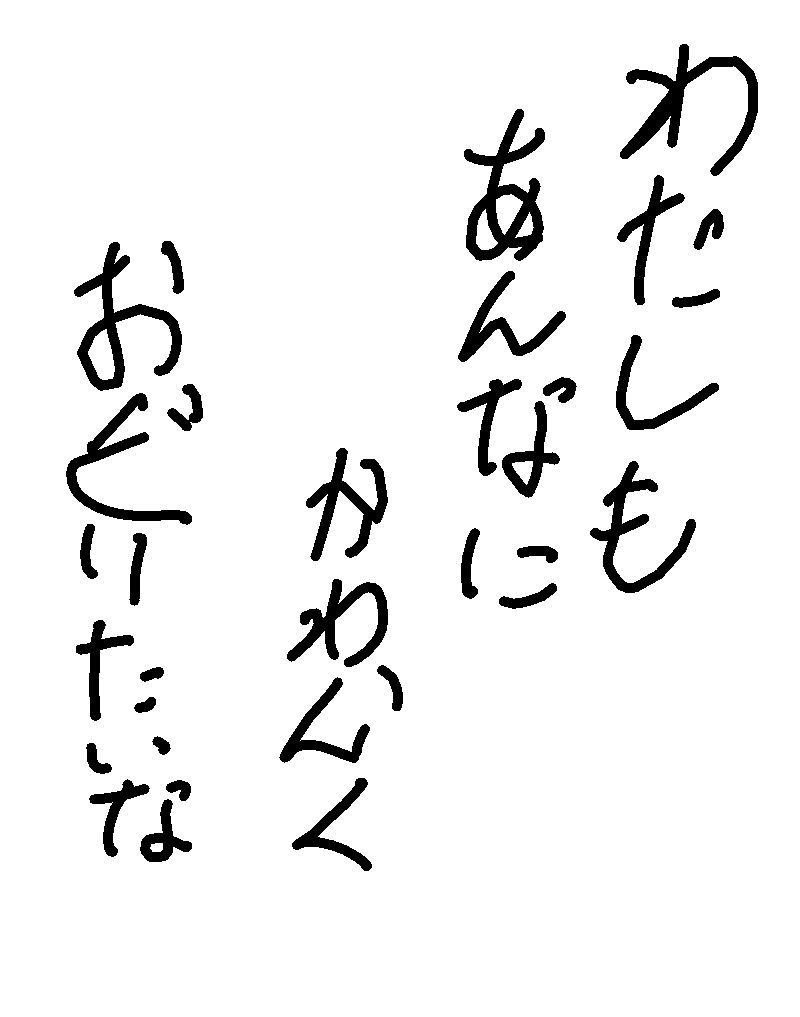 わたしも
あんなに
かわいく
おどりたいな